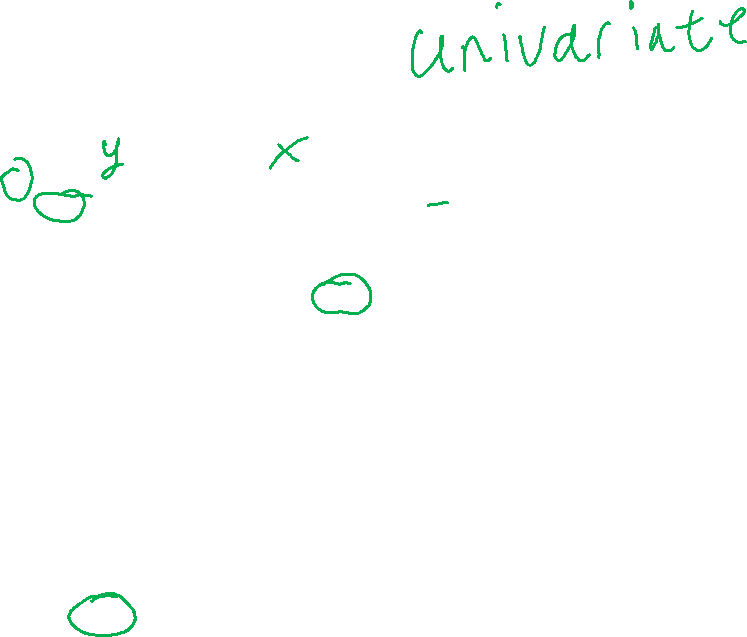 univariate
y x